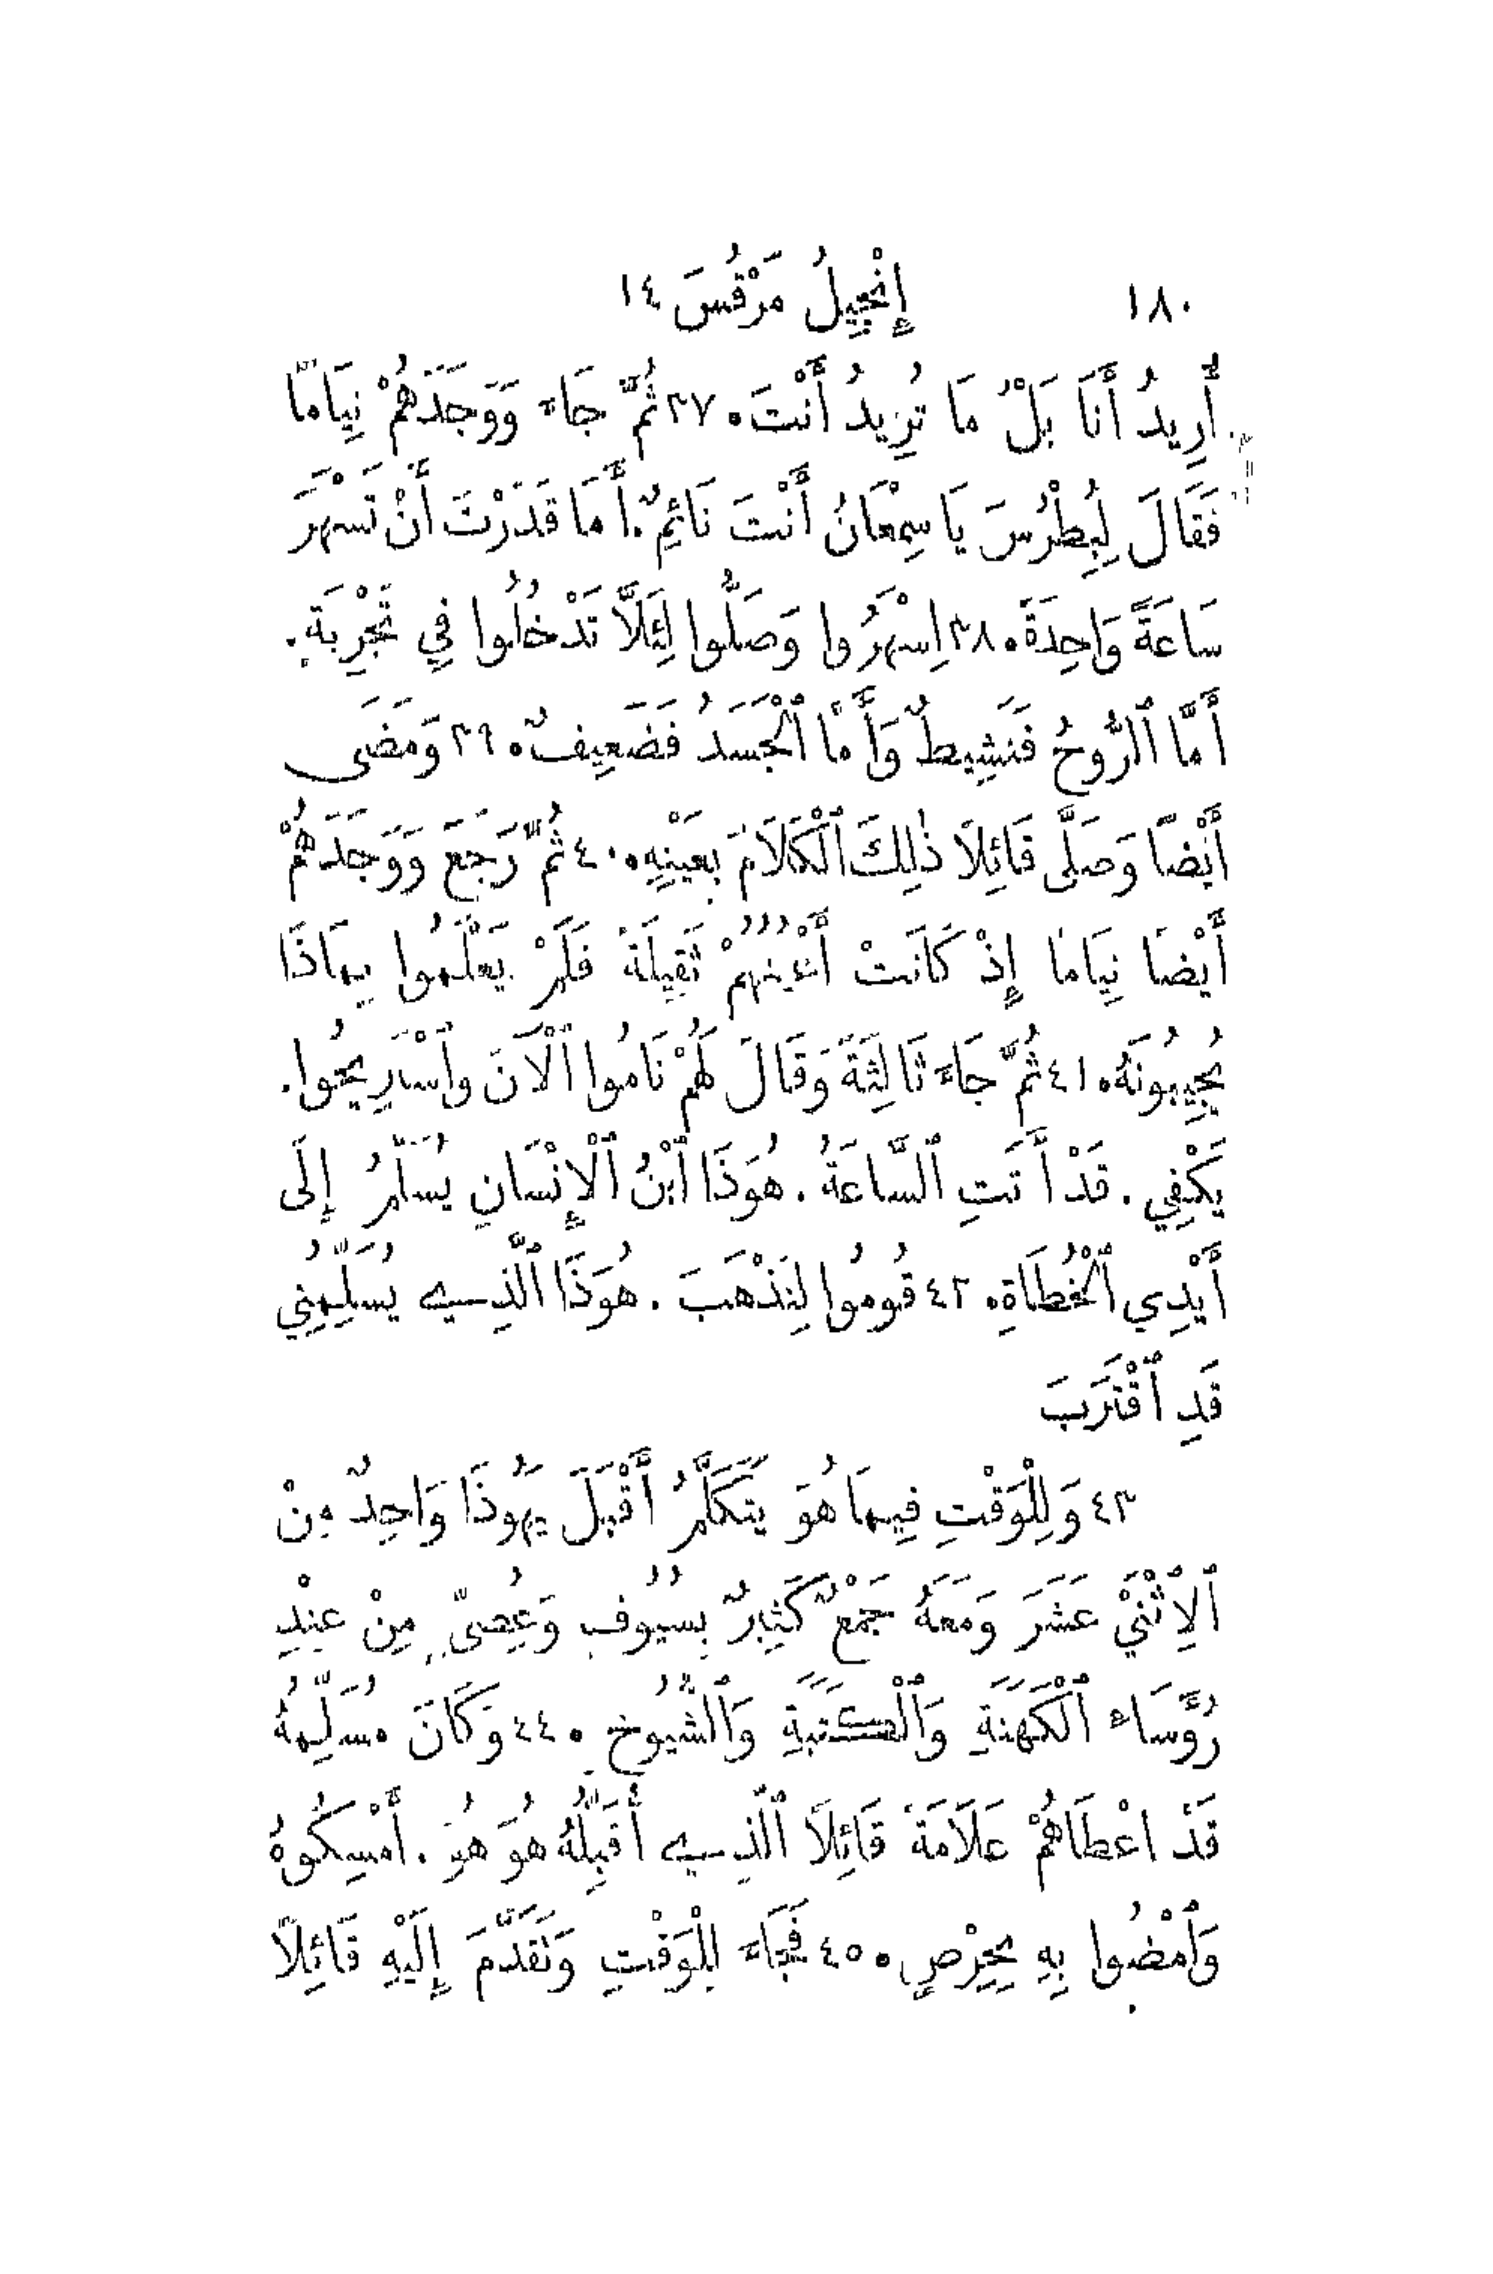 ١٨٠ إِنْجِيلُ مَرْقُسَ ١٤
أُرِيدُ أَنَا بَلْ مَا تُرِيدُ أَنْتَ ٠ ٣٧ ثُمَّ جَاءَ وَوَجَدَهُمْ نِيَامًا
فَقَالَ لِبُطْرُسَ يَا سِمْعَانُ أَنْتَ نَائِمٌ. أَمَا قَدَرْتَ أَنْ تَسْهَرَ
سَاعَةً وَاحِدَةً ٠ ٣٨ اِسْهَرُوا وَصَلُّوا لِئَلَّا تَدْخُلُوا فِي تَجْرِبَةٍ.
أَمَّا ٱلرُّوحُ فَنَشِيطٌ وَأَمَّا ٱلْجَسَدُ فَضَعِيفٌ ٠ ٣٩ وَمَضَى
أَيْضًا وَصَلَّى قَائِلًا ذٰلِكَ ٱلْكَلَامَ بِعَيْنِهِ ٠ ٤٠ ثُمَّ رَجَعَ وَوَجَدَهُمْ
أَيْضًا نِيَامًا إِذْ كَانَتْ أَعْيُنُهُمْ ثَقِيلَةً فَلَمْ يَعْلَمُوا بِمَاذَا
يُجِيبُونَهُ ٠ ٤١ ثُمَّ جَاءَ ثَالِثَةً وَقَالَ لَهُمْ نَامُوا ٱلْآنَ وَٱسْتَرِيحُوا.
يَكْفِي . قَدْ أَتَتِ ٱلسَّاعَةُ . هُوَذَا ٱبْنُ ٱلْإِنْسَانِ يُسَلَّمُ إِلَى
أَيْدِي ٱلْخُطَاةِ ٠ ٤٢ قُومُوا لِنَذْهَبَ . هُوَذَا ٱلَّذِي يُسَلِّمُنِي
قَدِ ٱقْتَرَبَ
٤٣ وَلِلْوَقْتِ فِيمَا هُوَ يَتَكَلَّمُ أَقْبَلَ يَهُوذَا وَاحِدٌ مِنْ
ٱلِٱثْنَيْ عَشَرَ وَمَعَهُ جَمْعٌ كَثِيرٌ بِسُيُوفٍ وَعُصِيٍّ مِنْ عِنْدِ
رُؤَسَاءِ ٱلْكَهَنَةِ وَٱلْكَتَبَةِ وَٱلشُّيُوخِ ٠ ٤٤ وَكَانَ مُسَلِّمُهُ
قَدْ اعْطَاهُمْ عَلَامَةً قَائِلًا ٱلَّذِي أُقَبِّلُهُ هُوَ هُوَ . أَمْسِكُوهُ
وَٱمْضُوا بِهِ بِحِرْصٍ ٠ ٤٥ فَجَاءَ لِلْوَقْتِ وَتَقَدَّمَ إِلَيْهِ قَائِلًا